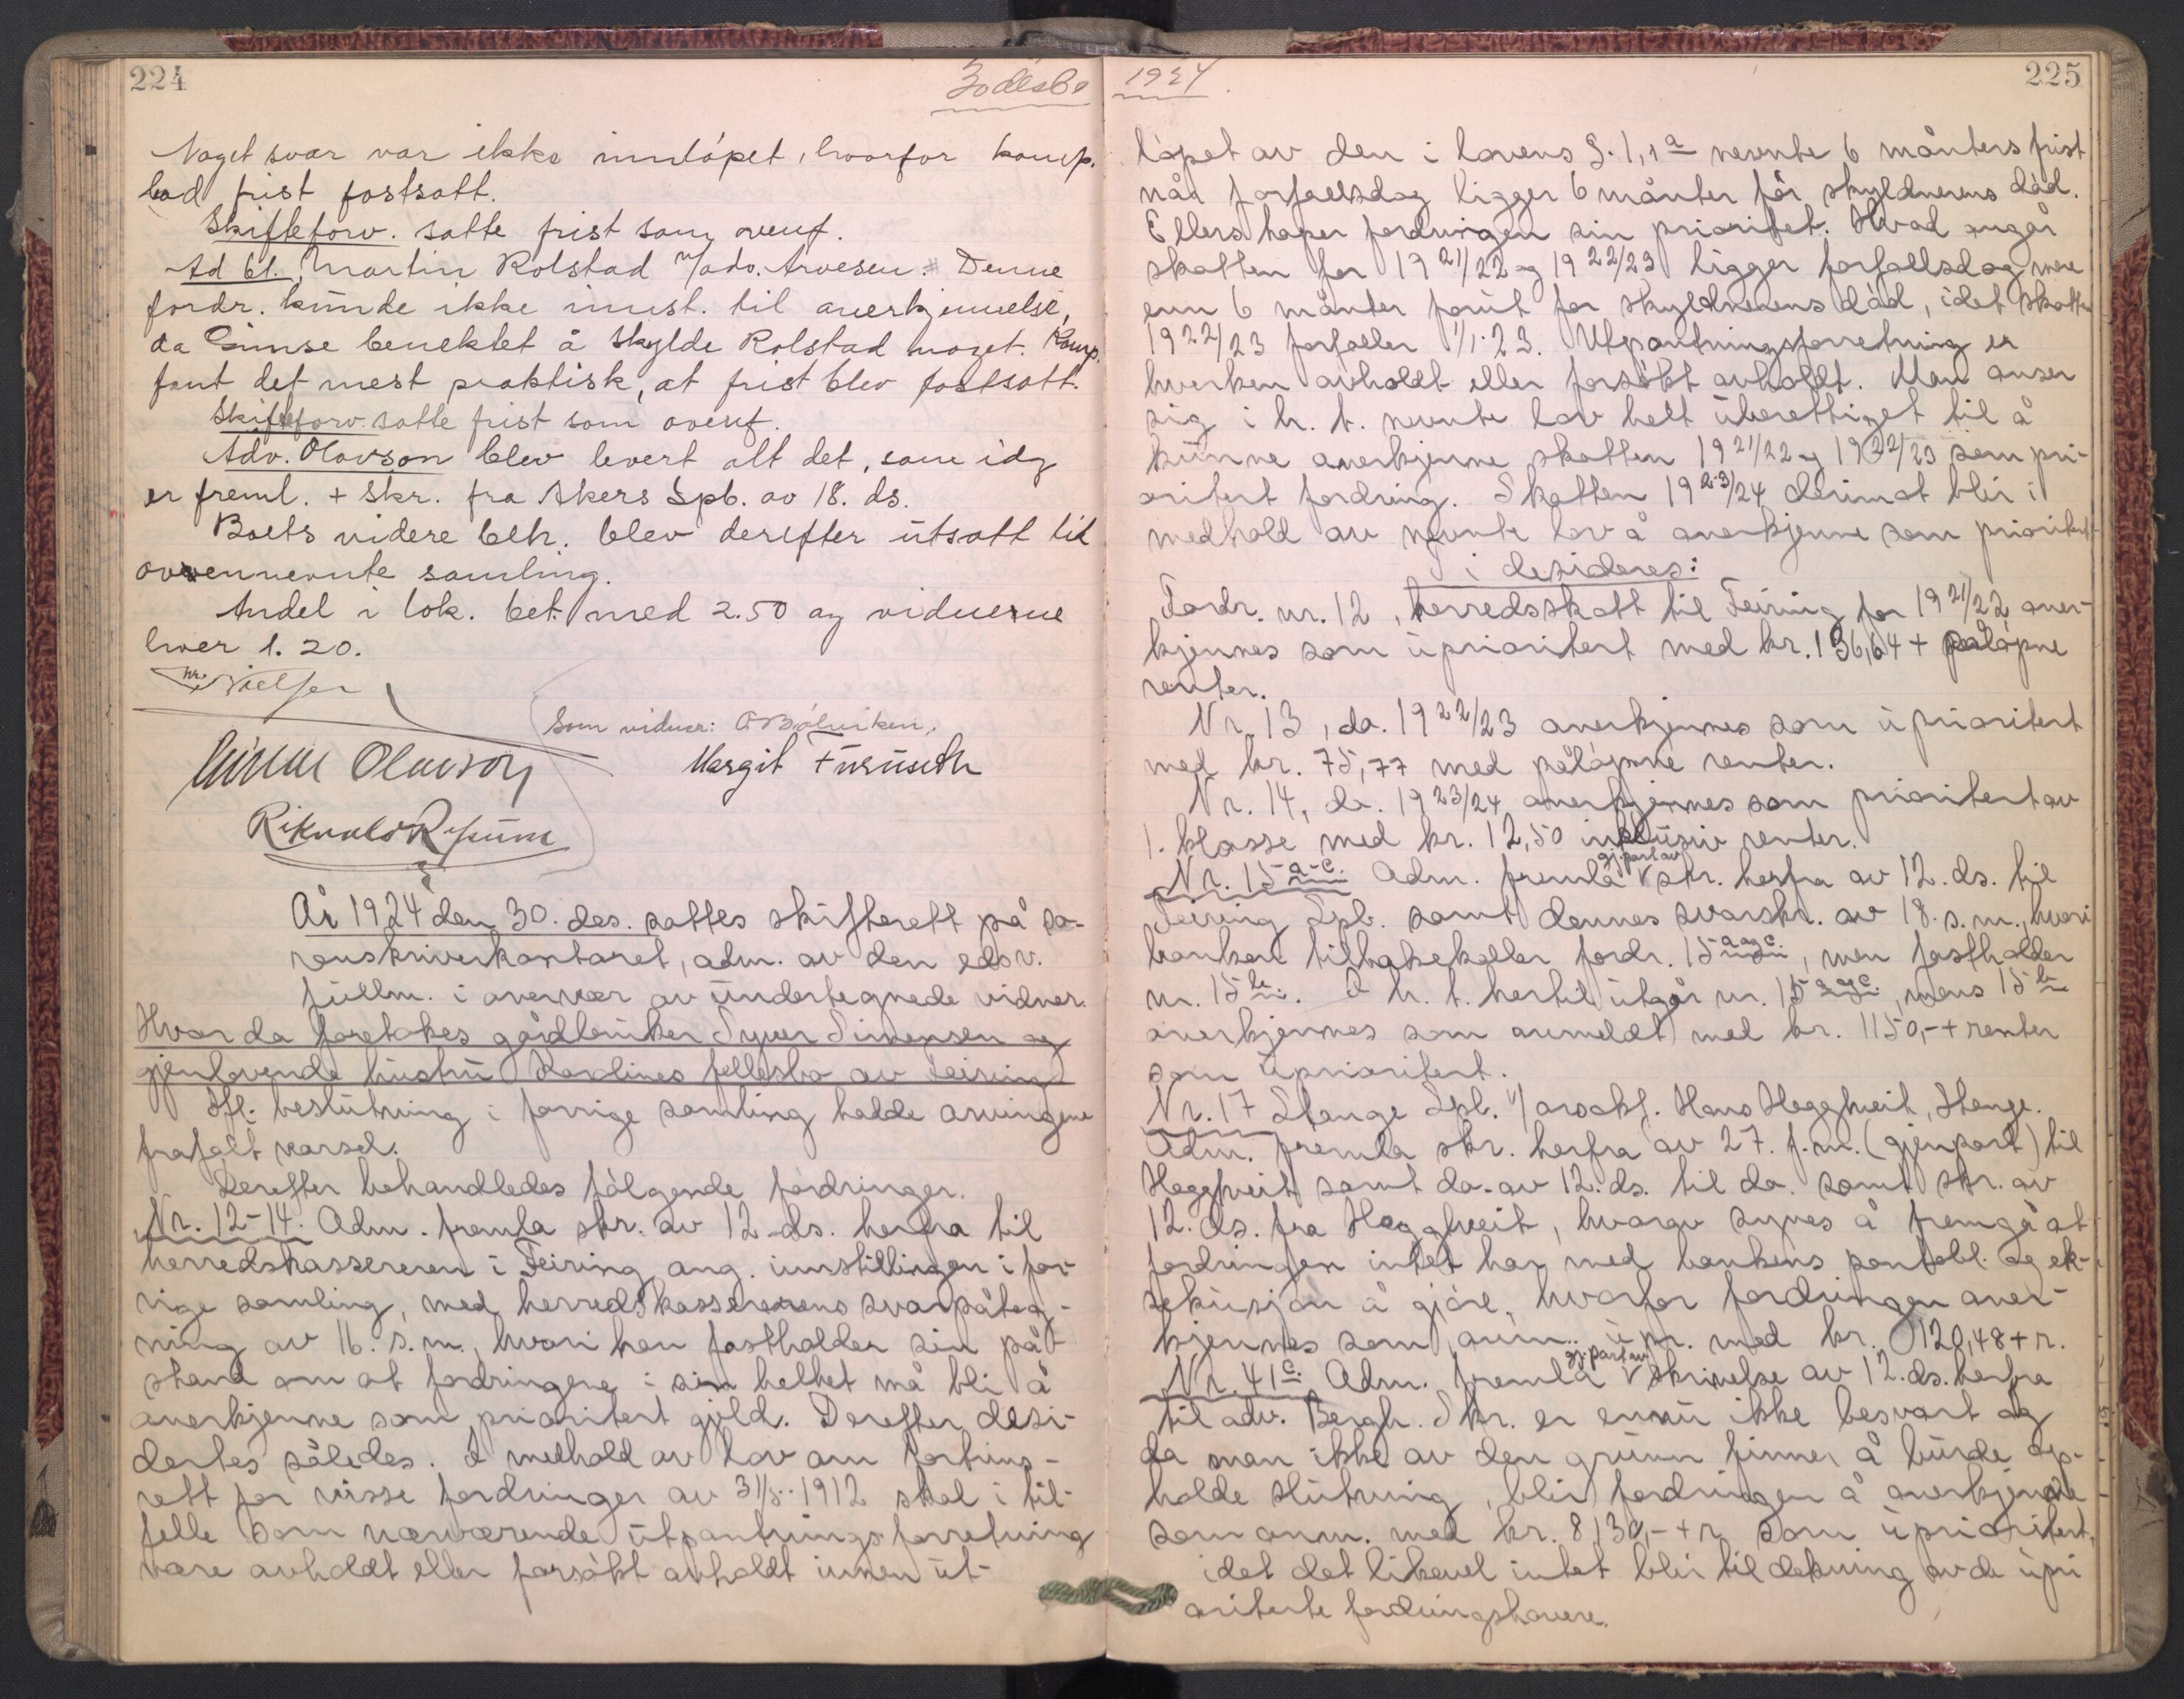 224
Dødsbo
Noget svar var ikke innløpet, hvorfor komp.
bad frist fastsatt.
Skifteforv. satte frist som ovenf.
Ad 61. Martin Rolstad v/adv. Arvesen. Denne
fordr. kunde ikke innst. til anerkjennelse,
da Simse benektet å skylde Rolstad noget. Komp.
fant det mest praktisk, at frist blev fastsatt.
Skifteforv. satte frist som ovenf.
Adv. Olavson blev levert alt det, som idg
er freml. + skr. fra Akers Spb. av 18. ds.
Boets videre beh. blev derefter utsatt til
ovvennevnte samling.
Andel i lok. bet. med 2.50 og vidnerne
hver 1.20.
Nielsen
Som vidner:
Olavson
Margit Furuseth
År 1924 den 30. des. sattes skifterett på so-
renskriverkontoret, adm. av den edsv.
fullm. i overvær av undertegnede vidner.
Hvor da foretokes gårdbruker Syver Simensen og
gjenlevende hustru Karolines fellesbo av Feiring
Ifl. beslutning i forrige samling hadde arvingene
frafalt varsel.
Derefter behandledes følgende fordringer.
Nr. 12-14. Adm. fremla skr. av 12. ds. herfra til
herredskassereren i Feiring ang. innstillingen i for-
rige samling, med herredskassererens svarpåteg-
ning av 16. s.m., hvori han fastholder sin på-
stand om at fordringene i sin helhet må bli å
anerkjenne som prioritert gjeld. Derefter desi-
dertes således. I medhold av lov om fortrins-
rett for visse fordringer av 31/5.1912 skal i til-
felle som nærværende utpantningsforretning
være avholdt eller forsøkt avholdt innen ut-
1924
225
løpet av den i lovens §.1,1a nevnte 6 månters frist
når forfallsdag ligger 6 månter før skyldnerens død.
Ellers taper fordringen sin prioritet. Hvad angår
skatten for 1921/22 og 1922/23 ligger forfallsdag mere
enn 6 månter forut for skyldnerens død, idet skatten
1922/23 forfaller 1/1.23. Utpantningsforretning er
hverken avholdt eller forsøkt avholdt. Man anser
sig i h. t. nevnte lov helt uberettiget til å
kunne anerkjenne skatten 1921/22 og 1922/23 som pri-
oritert fordring. Skatten 1923/24 derimot blir i
medhold av nevnte lov å anerkjenne som prioritert
i desideres:
Fordr. nr. 12, herredsskatt til Feiring for 1921/22 aner-
kjennes som uprioritert med kr. 136,64 + påløpne
renter.
Nr. 13, do. 1922/23 anerkjennes som uprioritert
med kr. 75,77 med påløpne renter.
Nr. 14, do. 1923/24 anerkjennes som prioritert av
1. klasse med kr. 12,50 inklusiv renter.
Nr. 15 a-c. Adm. fremla gj.part av skr. herfra av 12. ds. til
Feiring Spb. samt dennes svarskr. av 18. s.m., hvori
banken tilbakekaller fordr. 15 a og c., men fastholder
nr. 15 b. I h. t. hertil utgår nr. 15 a og c., mens 15 b
anerkjennes som anmeldt med kr. 1150,- + renter
som uprioritert.
Nr. 17 Stange Spb. v/ o.r.sakf. Hans Heggtveit, Stange.
Adm. fremla skr. herfra av 27. f.m. (gjenpart) til
Heggtveit samt do. av 12. ds. til do. samt skr. av
12. ds. fra Heggtveit, hvorav synes å fremgå at
fordringen intet har med bankens pantobl. og ek-
sekusjon å gjøre, hvorfor fordringen aner-
kjennes som anm. upr. med kr. 120,48 + r.
Nr. 41 c. Adm. fremla gj.part av skrivelse av 12. ds. herfra
til adv. Bergh. Skr. er ennu ikke besvart og
da man ikke av den grunn finner å burde op-
holde slutning, blir fordringen å anerkjenne
som anm. med kr. 8130,- + r. som uprioritert,
idet det likevel intet blir til dekning av de upri
oriterte fordringshavere.